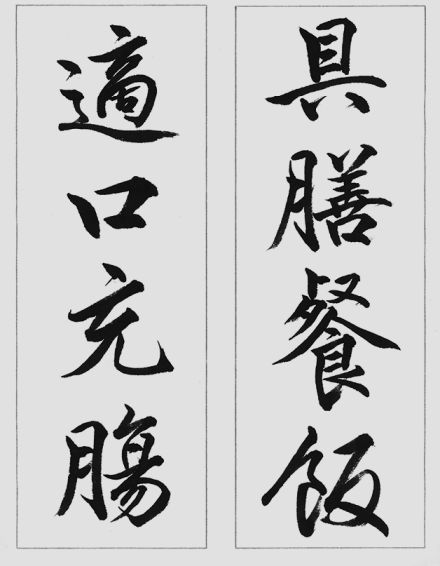 具膳餐飯
適口充腸